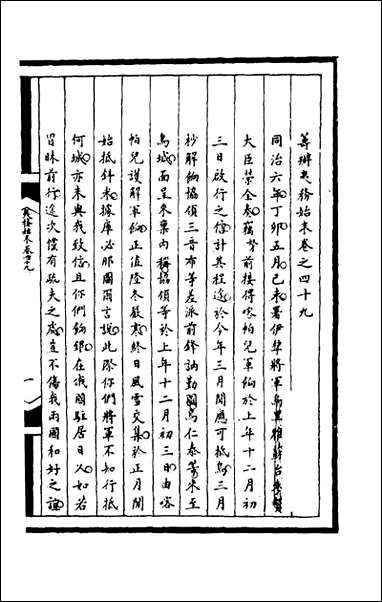 籌辦夷務始末卷之四十九
同治六年丁卯五月己未署伊犂將軍烏里雅蘇台參贊
大臣榮全奏竊奴才前接得喀帕兒軍餉於上年十二月初
三日啟行之信計其程途於今年三月間應可抵烏三月
杪解餉協領三音布等差派前鋒訥勤圖烏仁泰等來至
烏城面呈來稟內稱協領等於上年十二月初三日由喀
帕兒護解軍餉正值隆冬嚴寒終日風雪交集於正月間
始抵斜米據庫必那圖爾言說此際你們將軍不知行抵
何城亦未與我致信且你們餉銀在俄國駐居日久如若
冒昧前行途次儻有疏失之處豈不傷我兩國和好之誼
籌辦始末卷四十九
一